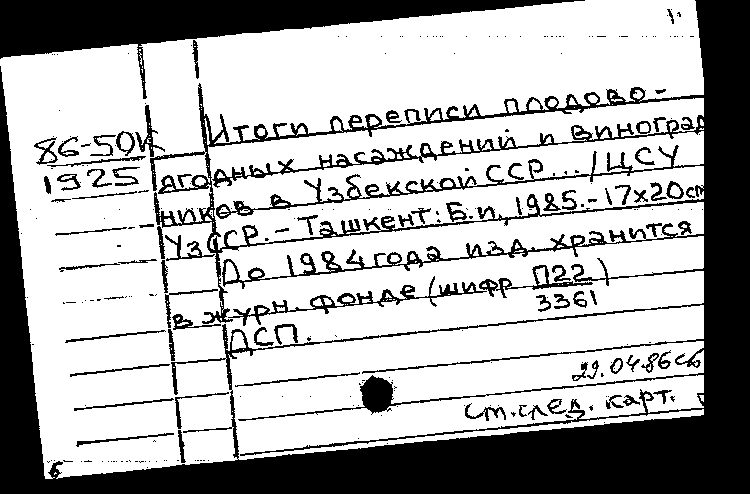 86-50К
1925
Итоги переписи плодово-
ягодных насаждений и виноград
ников в Узбекской ССР.../ЦСУ
УзССР.-Ташкент: Б.и., 1985.-17х20см
До 1984 года изд. хранится
в журн. фонде (шифр П22/3361)
ДСП.
29.04.86
ст. след. карт.